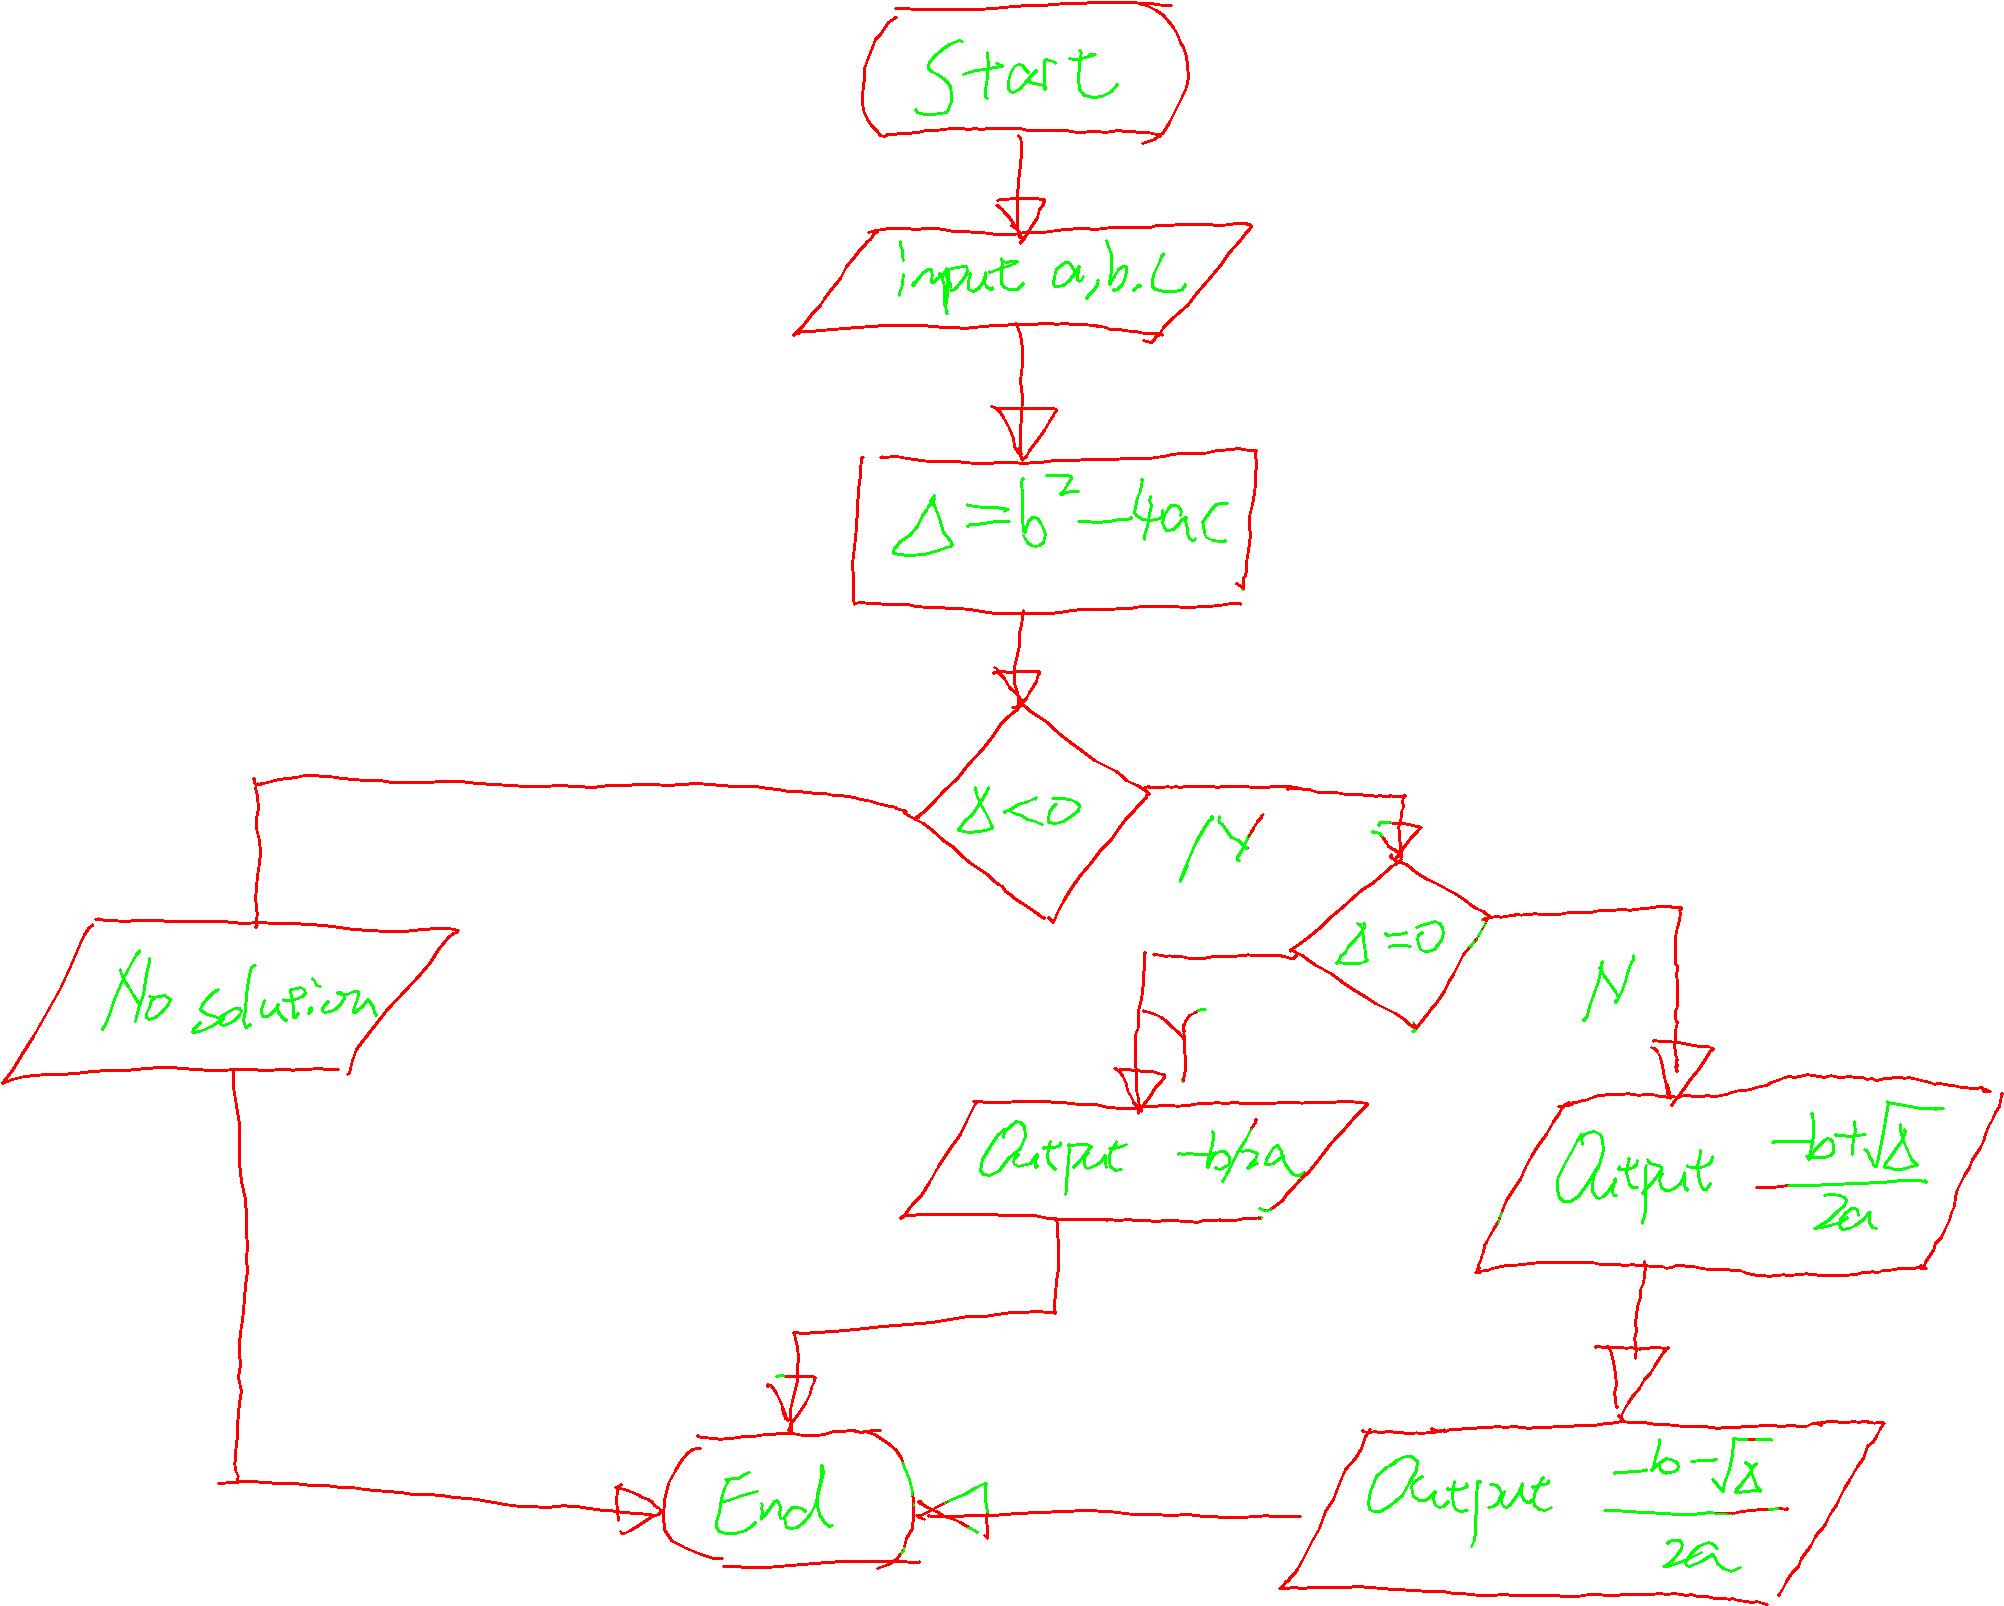 Start
input a,b.c
Δ=b²-4ac
Δ<0
N
Δ=0
N
Y
No solution
Output -b/2a
Output (-b+√Δ)/2a
Output (-b-√Δ)/2a
End